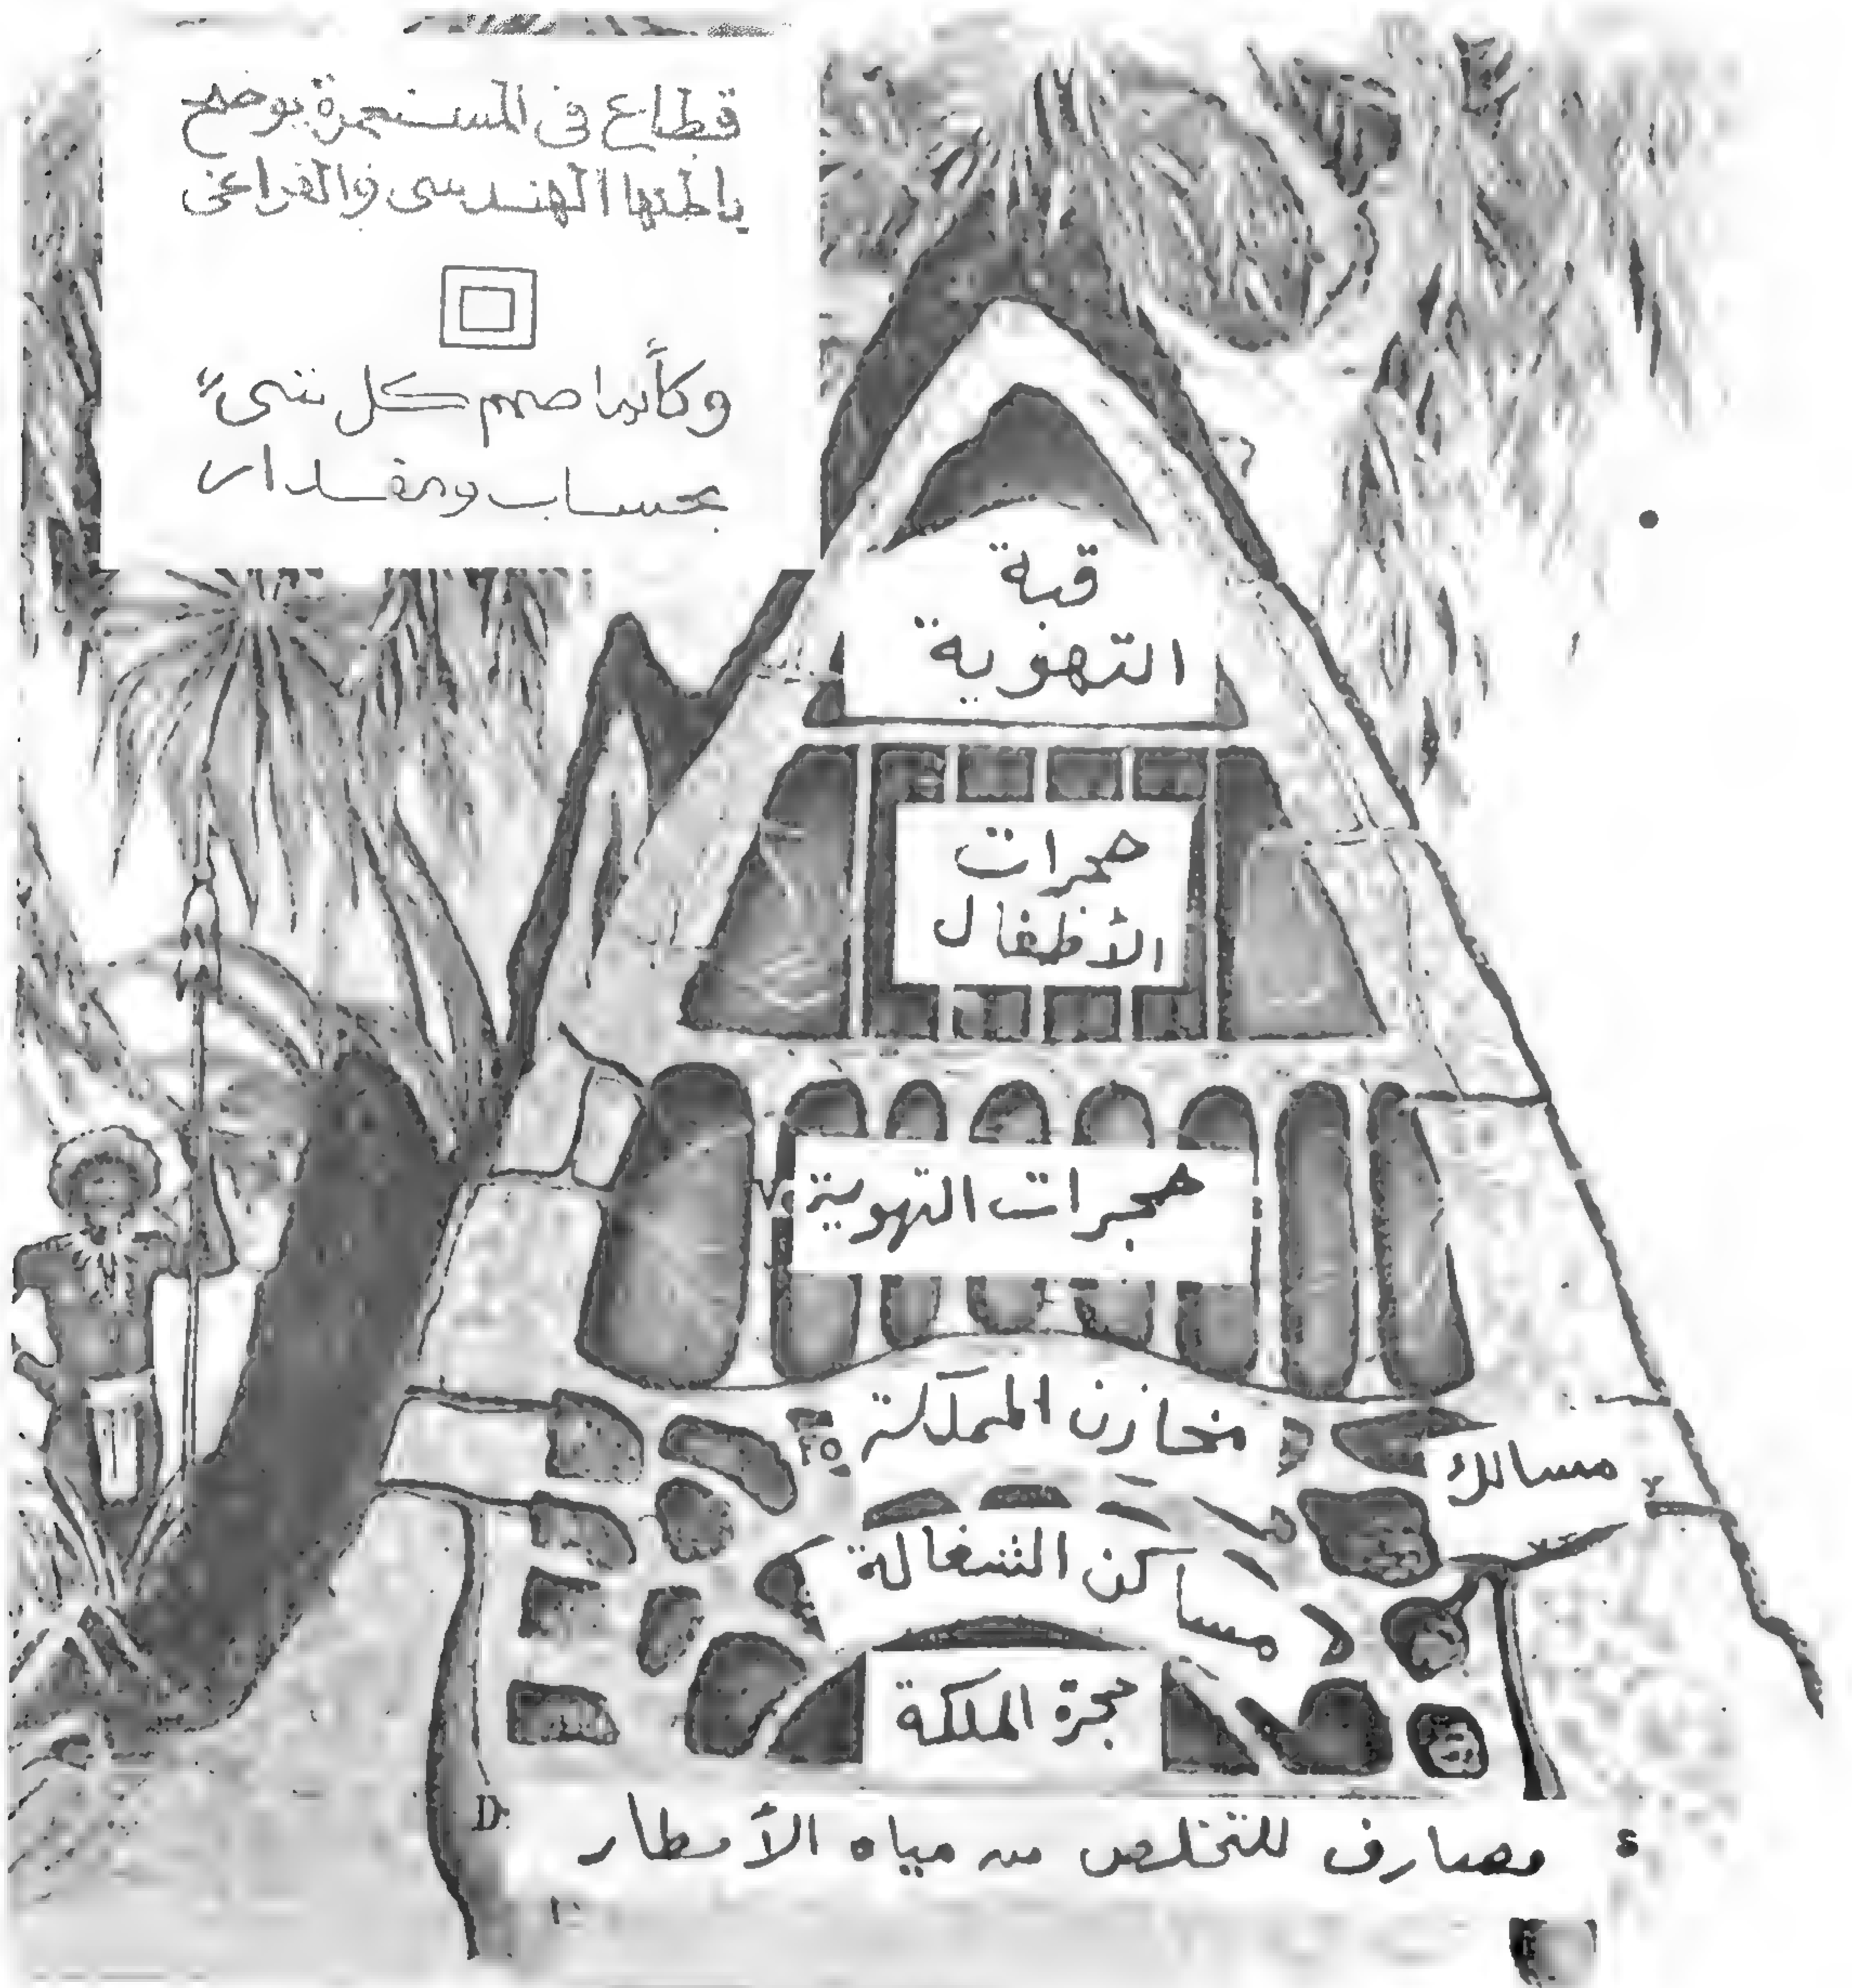 قطاع فى المستعمرة يوضح
باطنها الهندسى والفراغى
وكأنما صمم كل شىء
بحساب ومقدار
قبة
التهوية
حجرات
الأطفال
حجرات التهوية
مخازن المملكة
مسالك
مساكن الشغالة
حجرة الملكة
مصارف للتخلص من مياه الأمطار